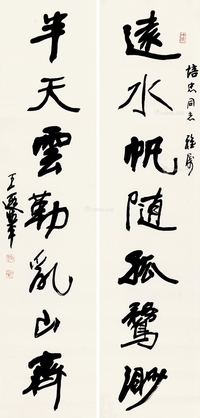 培忠同志
遠水帆随孤鶩渺
半天雲勒亂山齊
王遐舉